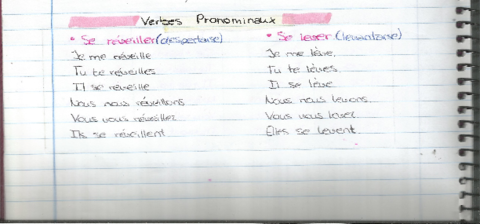 Verbes Pronominaux
* Se réveiller (despertarse)
Je me réveille
Tu te réveilles
Il se réveille
Nous nous réveillons
Vous vous réveillez
Ils se réveillent
* Se lever (levantarse)
Je me lève
Tu te lèves
Il se lève
Nous nous levons
Vous vous levez
Elles se lèvent